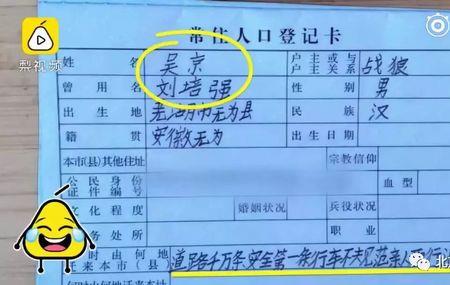 常住人口登记卡
梨视频
姓 名 吴京 户主或与户主关系 战狼
曾用名 刘培强 性别 男
出生地 芜湖市无为县 民族 汉
籍贯 安徽无为 出生日期
本市(县)其他住址 宗教信仰
公民身份证件编号 血型
文化程度 婚姻状况 兵役状况
务处所 职业
何时由何地迁来本市(县) 道路千万条安全第一条行车不规范亲人两行
北